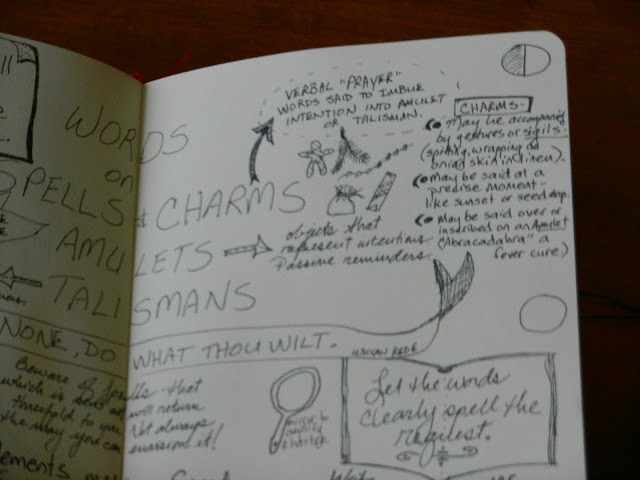 WORDS
on
SPELLS & CHARMS
AMULETS
TALISMANS
VERBAL "PRAYER"
WORDS SAID TO IMBUE
INTENTION INTO AMULET
OR TALISMAN.
objects that
represent intentions.
Passive reminders.
CHARMS-
May be accompanied
by gestures or sigils-
(spitting, wrapping an
onion skin in linen).
May be said at a
precise moment-
like sunset or seed drop.
May be said over or
inscribed on an Amulet
("Abracadabra" a
fever cure)
NONE, DO WHAT THOU WILT.
WICCAN REDE
Beware of spells - that
which is sent out will return
threefold to you. Not always
the way you can envision it!
mirror to
a witch
Let the words
clearly spell the
request.